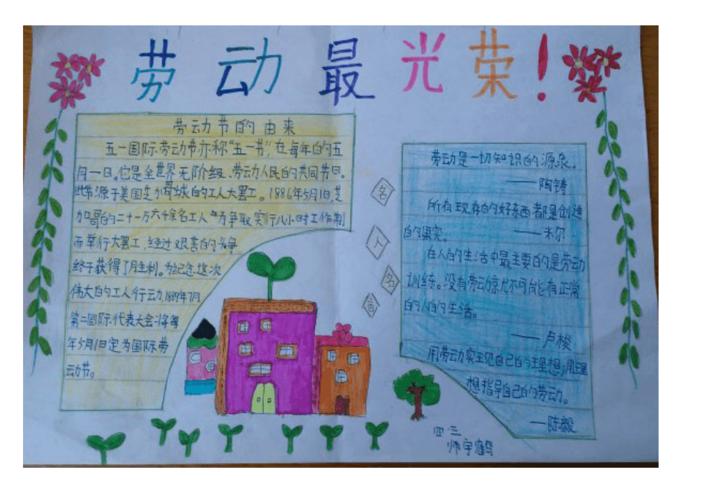 劳动最光荣!
劳动节的由来
五一国际劳动节亦称"五一节",在每年的五
月一日。它是全世界无阶级、劳动人民的共同节日。
此节源于美国芝加哥城的工人大罢工。1886年5月1日,芝
加哥的二十一万六千余名工人为争取实行八小时工作制
而举行大罢工,经过艰苦的斗争,
终于获得了胜利。为纪念这次
伟大的工人行动,1889年7月
第二国际代表大会将每
年5月1日定为国际劳
动节。
名
人
名
言
劳动是一切知识的源泉。
——陶铸
所有现存的好东西都是创造
的果实。——米尔
在人的生活中最主要的是劳动
训练。没有劳动就不可能有正常
的人的生活。
——卢梭
用劳动实现自己的理想,用理
想指导自己的劳动。
——陈毅
四三
师宇鹤